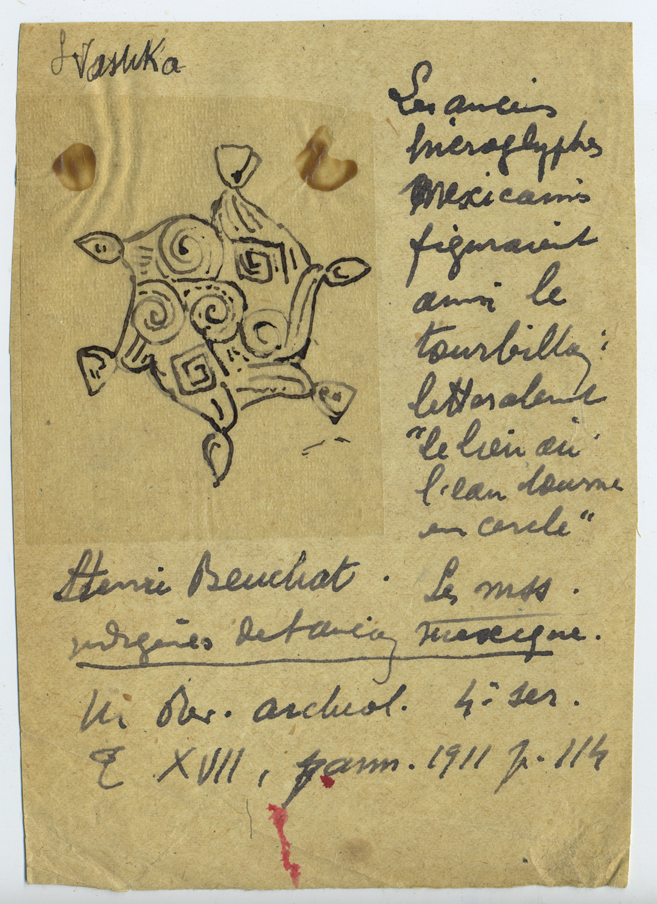 Svastika
Les anciens
hieroglyphes
Mexicains
figuraient
ainsi le
tourbillon:
litteralement
"le lieu où
l'eau tourne
en cercle"
Henri Beuchat. Les mss.
indigènes de l'ancien Mexique.
in Rev. archeol. 4e ser.
t XVII, janv. 1911 p. 114